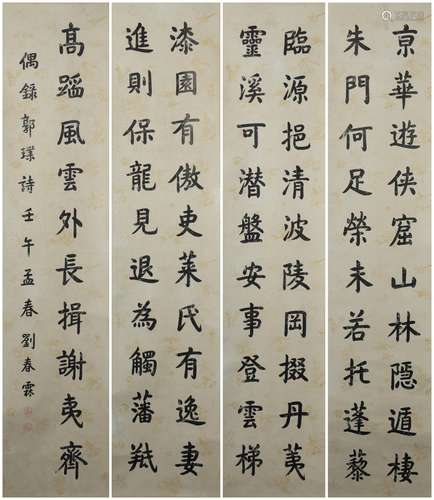 京華遊俠窟山林隱遁棲
朱門何足榮未若托蓬藜
臨源挹清波陵岡掇丹荑
靈溪可潛盤安事登雲梯
漆園有傲吏萊氏有逸妻
進則保龍見退為觸藩羝
高蹈風雲外長揖謝夷齊
偶錄郭璞詩壬午孟春劉春霖